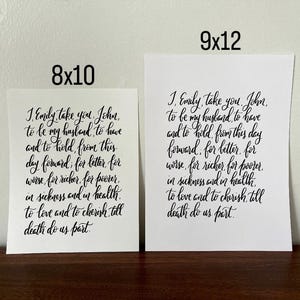 8x10
I, Emily, take you, John,
to be my husband, to have
and to hold, from this
day forward, for better, for
worse, for richer, for poorer,
in sickness and in health,
to love and to cherish, till
death do us part.
9x12
I, Emily, take you, John,
to be my husband, to have
and to hold, from this day
forward, for better, for
worse, for richer, for poorer,
in sickness and in health,
to love and to cherish, till
death do us part.